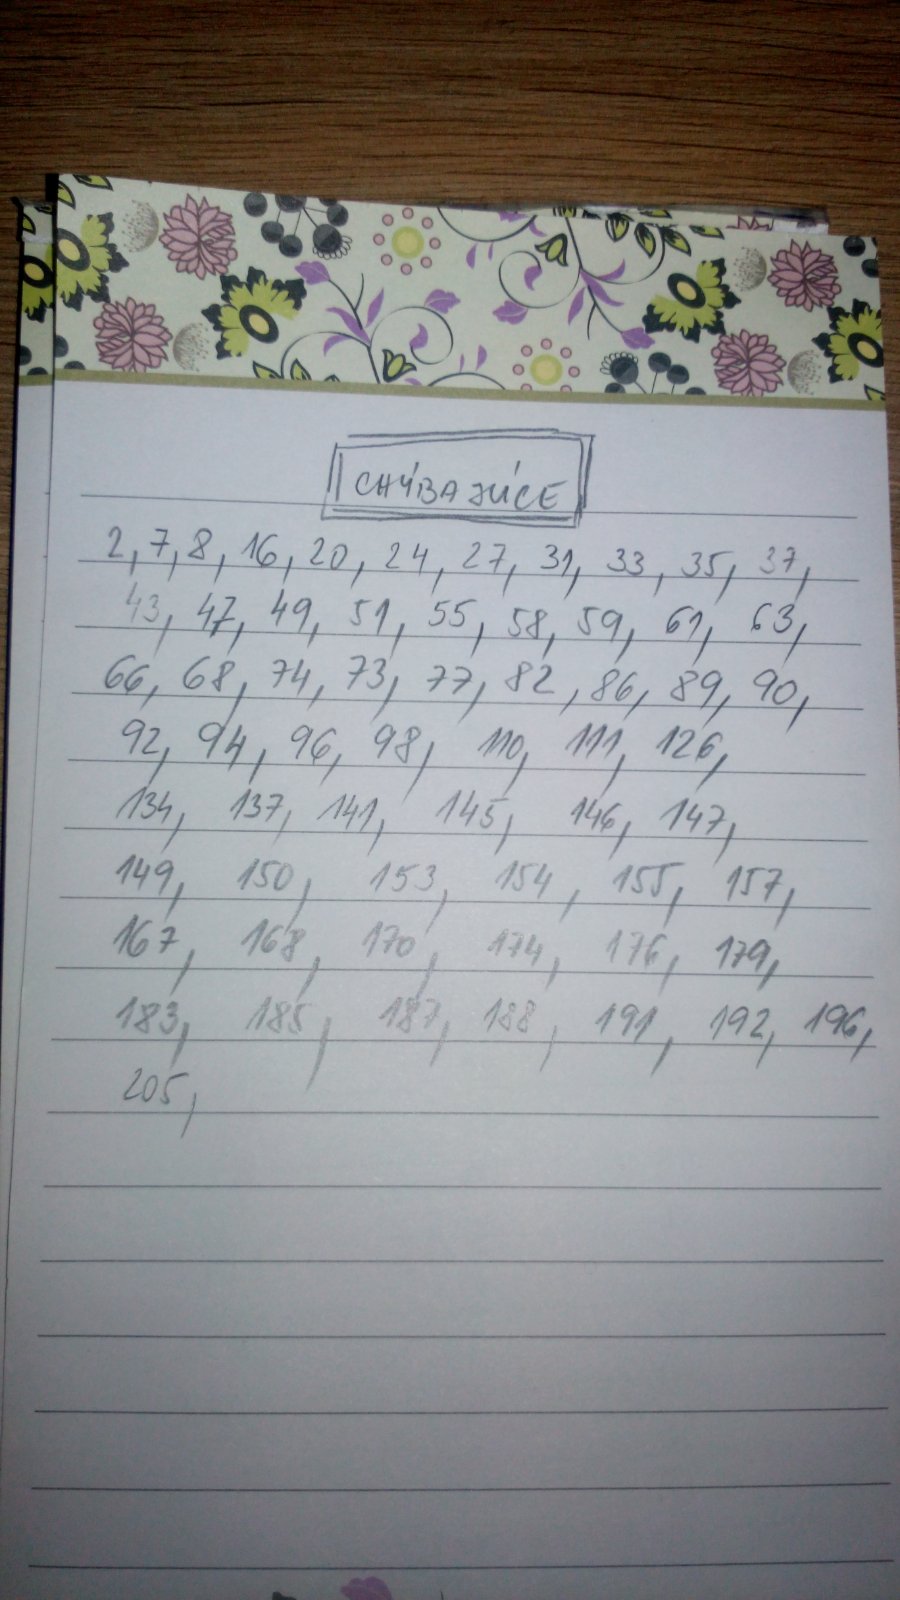 CHÝBAJÚCE
2, 7, 8, 16, 20, 24, 27, 31, 33, 35, 37,
43, 47, 49, 51, 55, 58, 59, 61, 63,
66, 68, 74, 73, 77, 82, 86, 89, 90,
92, 94, 96, 98, 110, 111, 126,
134, 137, 141, 145, 146, 147,
149, 150, 153, 154, 155, 157,
167, 168, 170, 174, 176, 179,
183, 185, 187, 188, 191, 192, 196,
205,